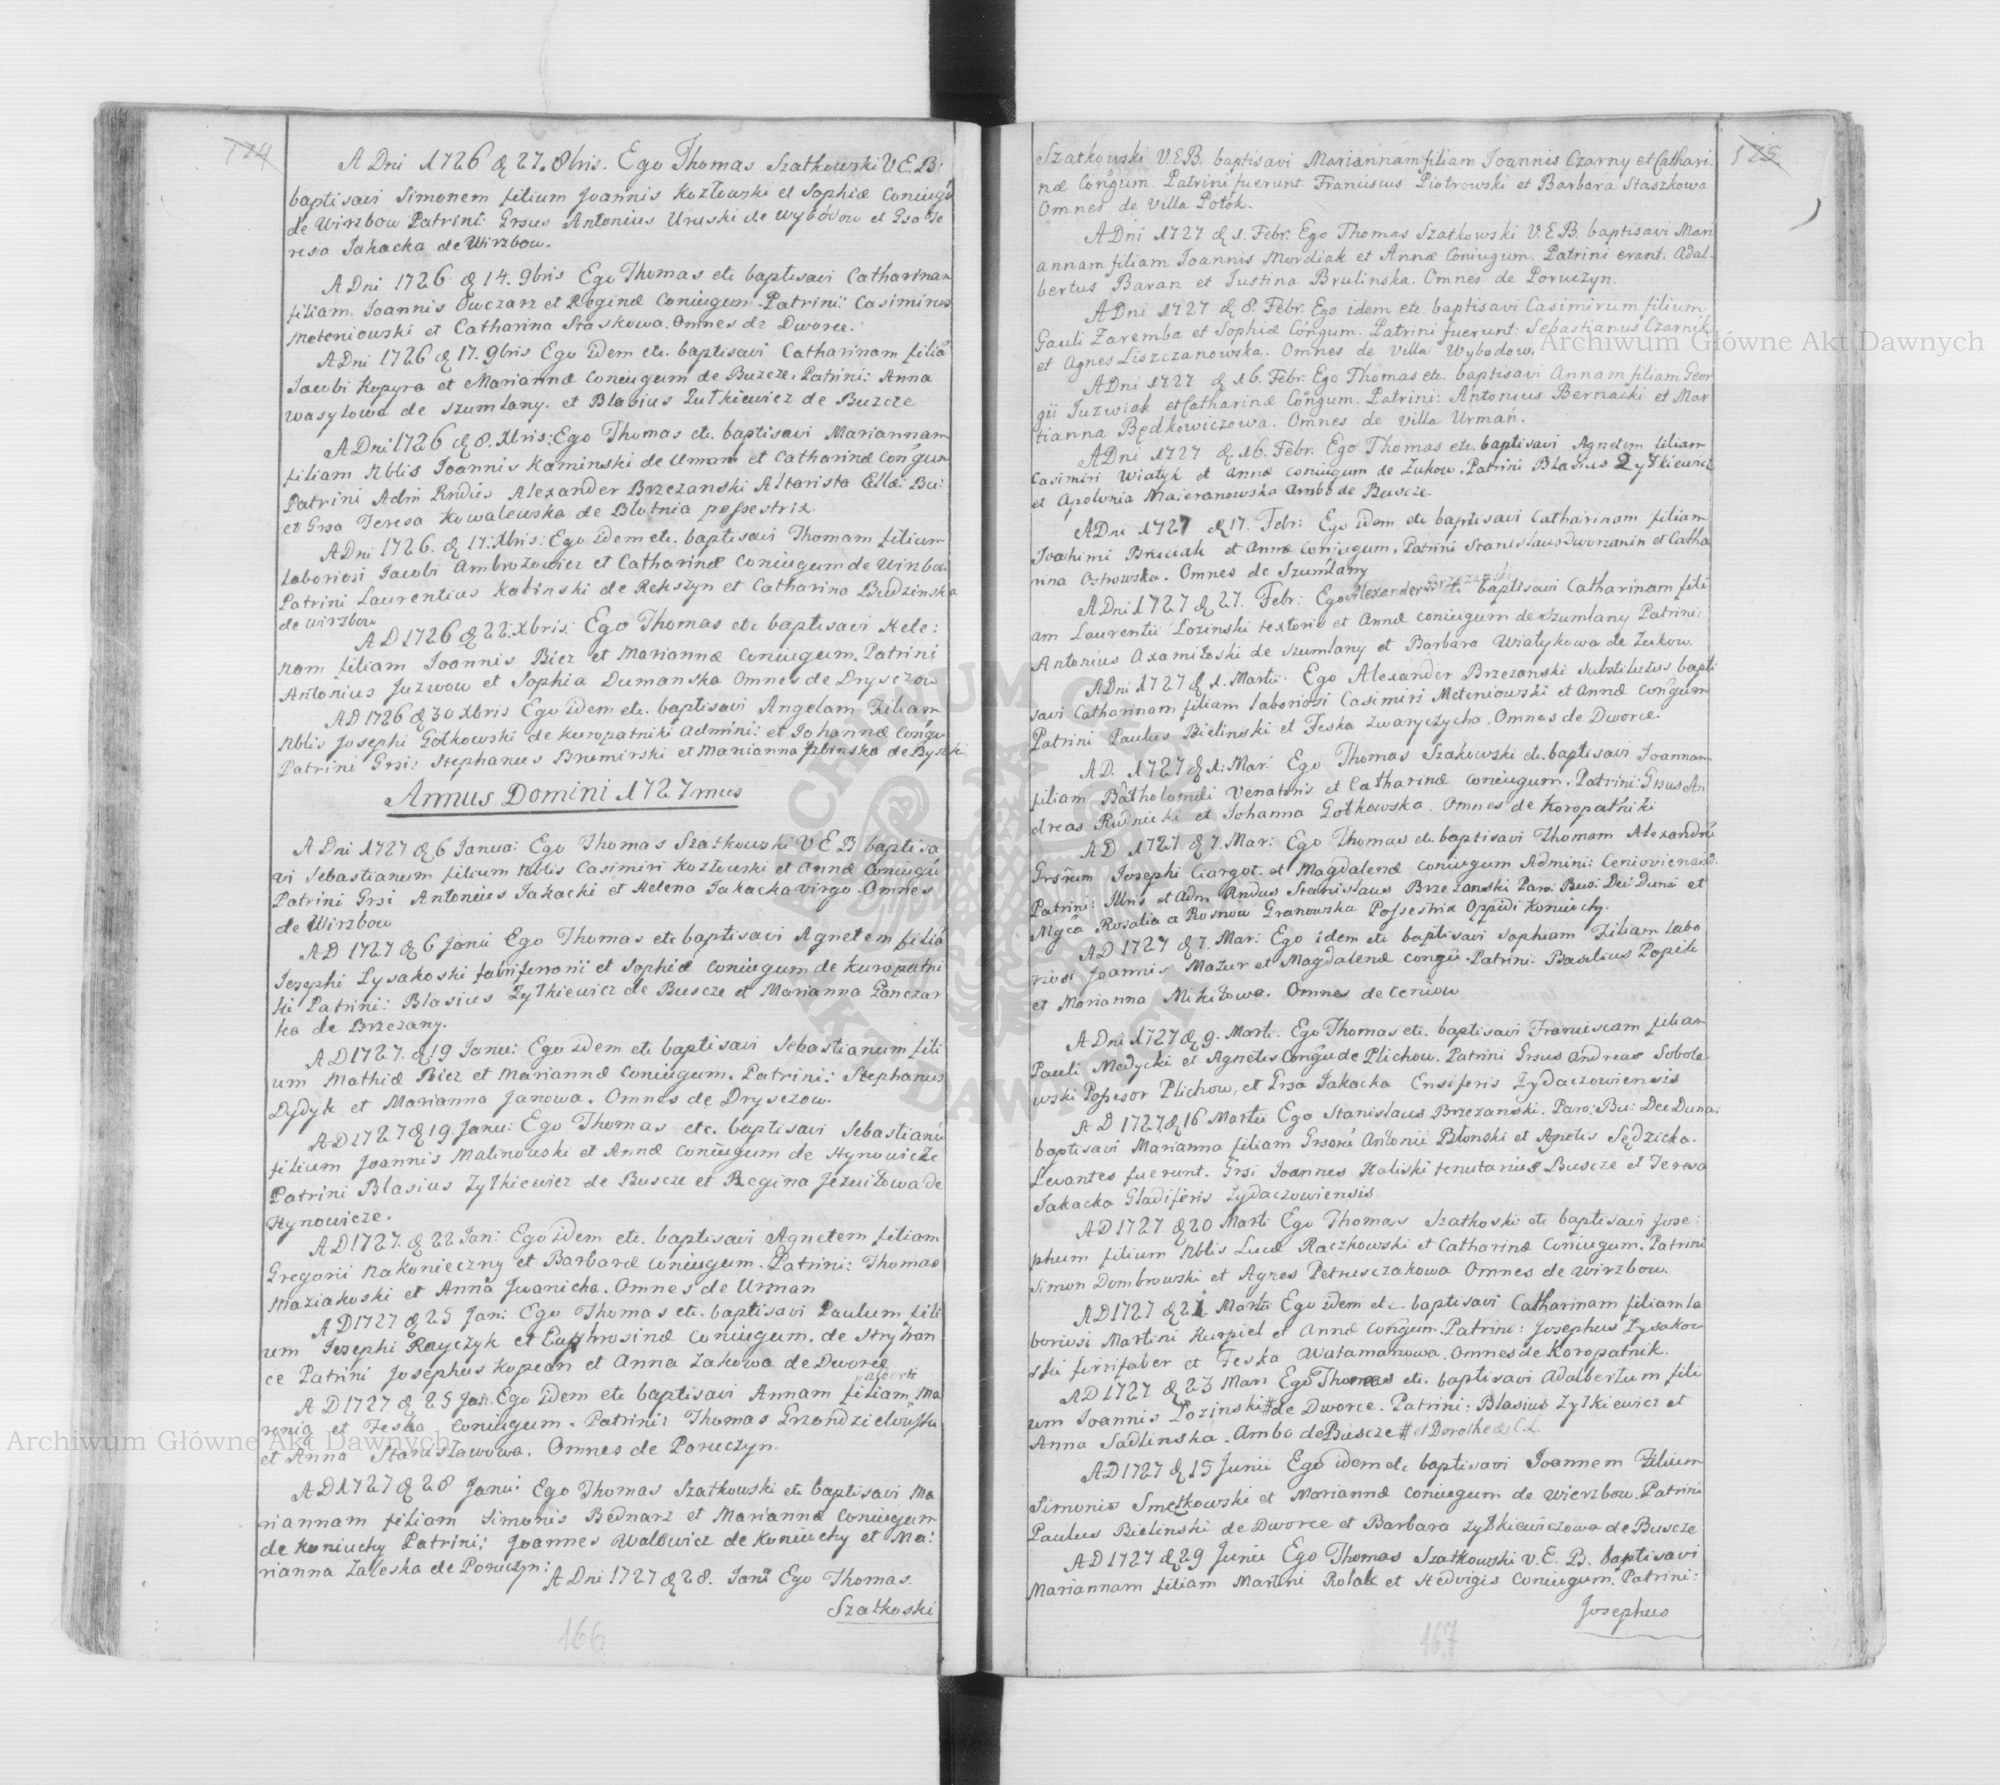 174
A Dni 1726 d 27. 8bris. Ego Thomas Szatkowski V.E.B.
baptisavi Simonem filium Joannis Kozłowski et Sophiæ Coniugũ
de Wirzbow Patrini: Grsus Antonius Uruski de Wybodow et Grsa Te
resa Jakacka de Wirzbow.
A Dni 1726 d 14. 9bris Ego Thomas etc baptisavi Catharinam
filiam Joannis Owczarz et Reginæ Coniugum. Patrini: Casimirus
Meteniowski et Catharina Staskowa. Omnes de Dworce.
A Dni 1726 d 17. 9bris Ego idem etc. baptisavi Catharinam filiã
Jacobi Kopyra et Mariannæ Coniugum de Buszcze. Patrini: Anna
Wasylowa de Szumlany. et Blasius Zutkiewicz de Buszcze
A Dni 1726 d 8. Xbris: Ego Thomas etc. baptisavi Mariannam
filiam Nblis Joannis Kaminski de Uman et Catharinæ Congum
Patrini Adm Rndus Alexander Brzezanski Altarista Ellæ: Bu:
et Grsa Teresa Kowalewska de Blotnia possestrix
A Dni 1726. d 17: Xbris: Ego idem etc. baptisavi Thomam filium
Laboriosi Jacobi Ambrozowicz et Catharinæ Coniugum de Wirzbow
Patrini Laurentius Kalinski de Rekszyn et Catharina Budzinska
de Wirzbow
A D 1726 d 22: Xbris: Ego Thomas etc baptisavi Hele:
nam filiam Joannis Bicz et Mariannæ Coniugum. Patrini
Antonius Juzwow et Sophia Dumanska Omnes de Dryszczow
A D 1726 d 30 Xbris Ego idem etc. baptisavi Angelam Filiam
Nblis Josephi Gołkowski de Kuropatniki Admini: et Johannæ Congũ
Patrini Grsi: Stephanus Bromirski et Marianna Izbinska de Byszki
Annus Domini 1727mus
A Dni 1727 d 6 Janua: Ego Thomas Szatkowski V E B baptisa
vi Sebastianum filium Nblis Casimiri Kozłowski et Annæ Coniugũ
Patrini Grsi Antonius Jakacki et Helena Jakacka virgo. Omnes
de Wirzbow
A D 1727 d 6 Janũ Ego Thomas etc baptisavi Agnetem filiã
Josephi Lysakoski fabriferrarii et Sophiæ Coniugum de Kuropatni
ki Patrini: Blasius Zyłkiewicz de Buscze et Marianna Ganczar
ka de Brzezany.
A D 1727. d 19 Janu: Ego idem etc baptisavi Sebastianum fili
um Mathiæ Bicz et Mariannæ Coniugum. Patrini: Stephanus
Dydyk et Marianna Janowa. Omnes de Dryszczow.
A D 1727 d 19 Janu: Ego Thomas etc. baptisavi Sebastianũ
filium Joannis Malinowski et Annæ Coniugum de Hynowicze
Patrini Blasius Zyłkiewicz de Buscze et Regina Jezwiłowa de
Hynowicze.
A D 1727. d 22 Jan: Ego idem etc. baptisavi Agnetem filiam
Gregorii Nakonieczny et Barbaræ Coniugum. Patrini: Thomas
Maziakoski et Anna Jwanicha. Omnes de Urman
A D 1727 d 25 Jan: Ego Thomas etc. baptisavi Paulum fili
um Josephi Rayczyk et Euphrosinæ Coniugum. de Stryhan
ce Patrini Josephus Kopean et Anna Zakowa de Dworce
A D 1727 d 25 Jan: Ego idem etc baptisavi Annam filiam Alberti Ma
renia et Feska Coniugum. Patrini: Thomas Grzondzielowski
et Anna Stanisławowa. Omnes de Poruczyn
A D 1727 d 28 Janu: Ego Thomas Szatkowski etc baptisavi Ma
riannam filiam Simonis Bednarz et Mariannæ Coniugum
de Koniuchy Patrini: Joannes Walowicz de Koniuchy et Ma:
rianna Zaleska de Poruczyn:
A Dni 1727 d 28. Janũ Ego Thomas
Szatkoski
166
175
Szatkowski V.E.B. baptisavi Mariannam filiam Joannis Czarny et Cathari
næ Congum. Patrini fuerunt. Franciscus Piotrowski et Barbara Staszkowa
Omnes de Villa Potok.
A Dni 1727 d 1. Febr: Ego Thomas Szatkowski V.E.B. baptisavi Mari
annam filiam Joannis Mordiak et Annæ Coniugum. Patrini erant. Adal-
bertus Baran et Justina Brulinska. Omnes de Poruczyn.
A Dni 1727 d 8. Febr: Ego idem etc. baptisavi Casimirum filium
Pauli Zaremba et Sophiæ Congum. Patrini fuerunt: Sebastianus Czarnik
et Agnes Liszczanowska. Omnes de Villa Wybodow.
A Dni 1727 d 16. Febr: Ego Thomas etc. baptisavi Annam filiam Geor
gii Juzwiak et Catharinæ Congum. Patrini: Antonius Bernacki et Mar
tianna Będkowiczowa. Omnes de Villa Urmań.
A Dni 1727 d 16. Febr. Ego Thomas etc. baptisavi Agnetem filiam
Casimiri Wiatyk et Annæ Coniugum de Zukow. Patrini Blasius Zyłkiewicz
et Apolonia Maieranowska Ambo de Buscze.
A Dni 1727 d 17. Febr: Ego idem etc baptisavi Catharinam filiam
Joachimi Bruciak et Annæ Conjugum. Patrini Stanislaus Dworzanin et Catha
rina Ostrowska. Omnes de Szumlany
A Dni 1727 d 27. Febr: Ego Alexander Brzezanski etc baptisavi Catharinam fili
am Laurentii Lozinski textoris et Annæ Coniugum de Szumlany Patrini:
Antonius Axamitoski de Szumlany et Barbara Wiatykowa de Zukow.
A Dni 1727 d 1. Martii. Ego Alexander Brzezanski Substitutus bapti
savi Catharinam filiam laboriosi Casimiri Meteniowski et Annæ Congum
Patrini Paulus Bielinski et Feska Zwaryczycha. Omnes de Dworce.
A D. 1727 d 1: Mar: Ego Thomas Szakowski etc. baptisavi Joannam
filiam Batholomæi Venatoris et Catharinæ Coniugum. Patrini: Grsus An
dreas Rudnicki et Johanna Gołkowska. Omnes de Koropatniki
A D 1727 d 7. Mar: Ego Thomas etc baptisavi Thomam Alexandrũ
Grsrum Josephi Ciargot. et Magdalenæ Coniugum Admini: Ceniovien
Patrini: Illris et Adm Rndus Stanislaus Brzezanski Paro: Bus: Dei Duna et
Mgca Rosalia a Rosnow Granowska Possestrix Oppidi Koniuchy.
A D 1727 d 7. Mar: Ego idem etc baptisavi Sophiam Filiam labo
riosi Joannis Mazur et Magdalenæ Congũ. Patrini: Basilius Popik
et Marianna Mikitowa. Omnes de Ceniow
A Dni 1727 d 9. Marti. Ego Thomas etc. baptisavi Francisiam filiam
Pauli Medycki et Agnetis Congũ de Plichow. Patrini Grsus Andreas Sobole
wski Possesor Plichow, et Grsa Jakacka Ensiferis Zydaczowiensis
A D 1727 d 16 Martii Ego Stanislaus Brzezanski. Paro: Bu: Dei Duna:
baptisavi Marianna filiam Grsorũ Antonii Błonski et Agnetis Sędzicka.
Levantes fuerunt. Grsi Joannes Haliski tenutarius Buscze et Teresa
Jakacka Gladiferis Zydaczowiensis.
A D 1727 d 20 Marti Ego Thomas Szatkoski etc baptisavi Jose:
phum filium Nblis Lucæ Raczkowski et Catharinæ Coniugum. Patrini
Simon Dombrowski et Agnes Petrusczakowa Omnes de Wirzbow.
A D 1727 d 21 Martii Ego idem etc. baptisavi Catharinam filiam la
boriosi Martini Kurpiel et Annæ Congum. Patrini: Josephus Lysakow
ski ferrifaber et Feska Watamanowa. Omnes de Koropatnik.
A D 1727 d 23 Mar: Ego Thomas etc. baptisavi Adalbertum fili
um Joannis Lozinski # de Dworce. Patrini: Blasius Zyłkiewicz et
Anna Sadlinska. Ambo de Buscze # et Dorotheæ C.L.
A D 1727 d 15 Junii Ego idem etc baptisavi Joannem Filium
Simonis Smętkowski et Mariannæ Coniugum de Wierzbow. Patrini
Paulus Bielinski de Dworce et Barbara Zyłkiewiczowa de Buscze
A D 1727 d 29 Junii Ego Thomas Szatkowski V. E. B. baptisavi
Mariannam filiam Martini Rolak et Hedvigis Coniugum. Patrini:
Josephus
167
Archiwum Główne Akt Dawnych
Archiwum Główne Akt Dawnych
ARCHIWUM GŁÓWNE AKT DAWNYCH